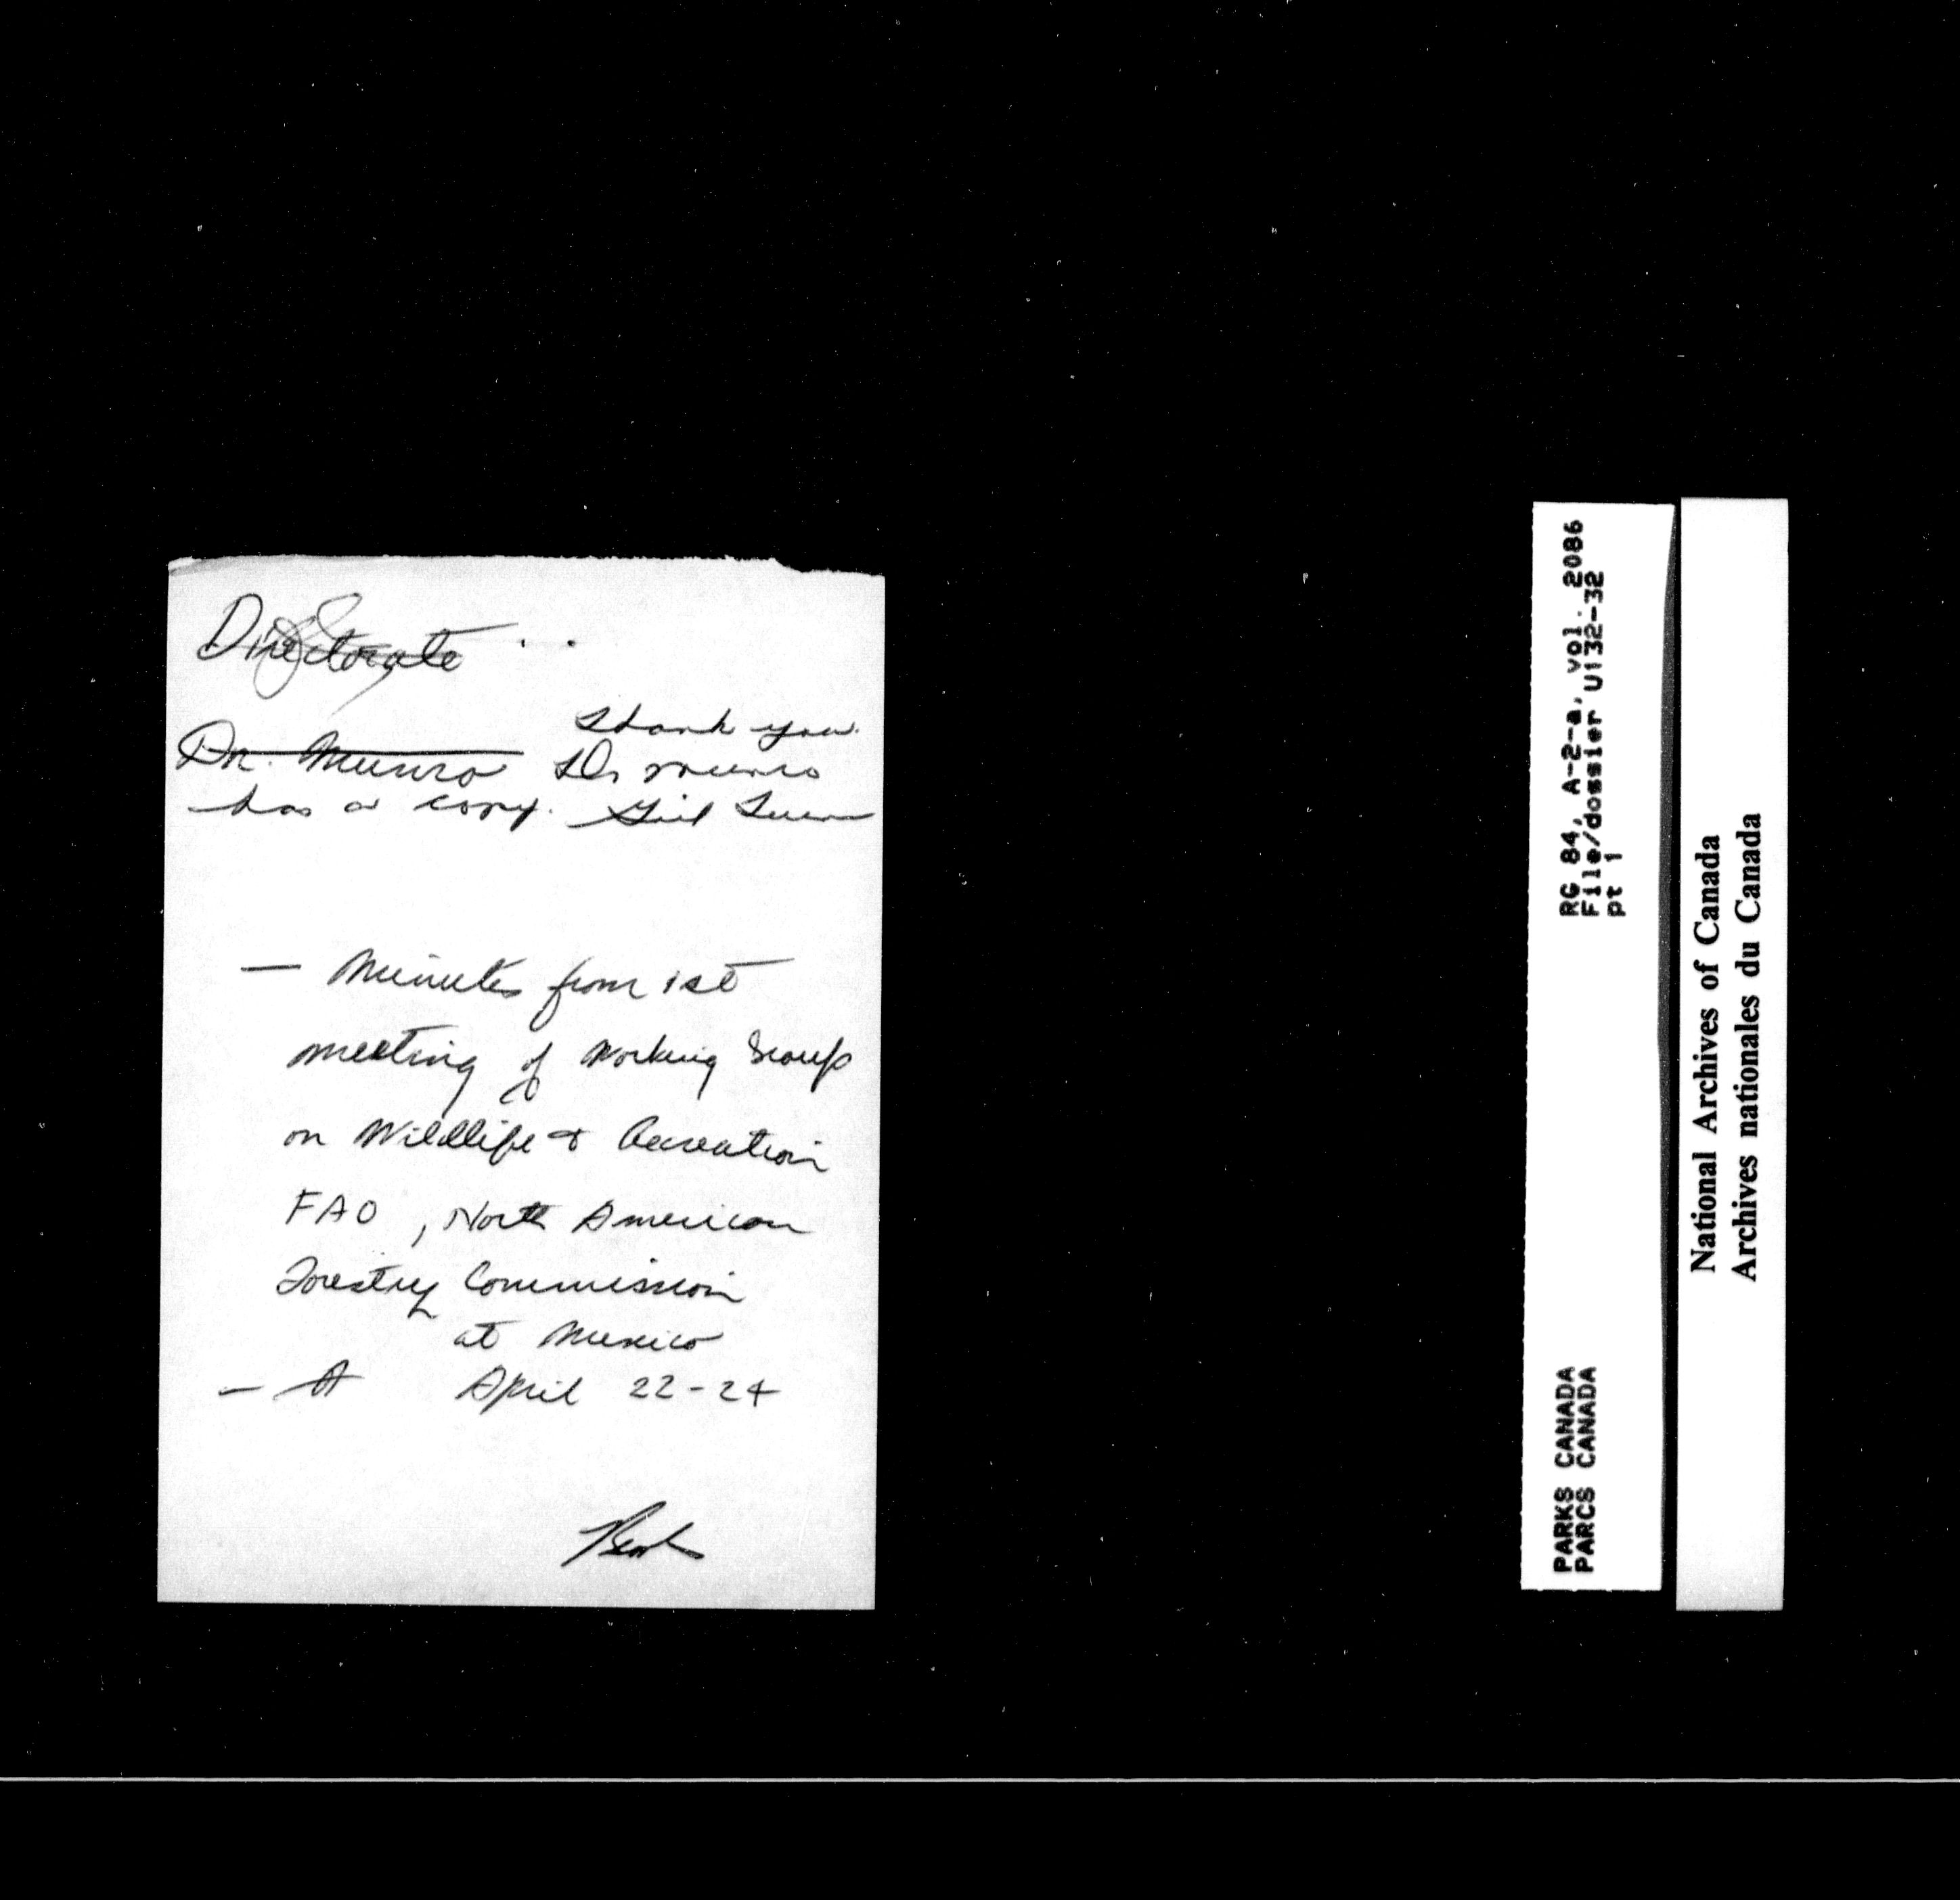 Directorate
Thank you.
Dr. Munro Dr Munro
has a copy.
— Minutes from 1st
meeting of Working Group
on Wildlife & Recreation
FAO, North American
Forestry Commission
at Mexico
— A April 22-24
RG 84, A-2-a, vol. 2086
File/dossier U132-32
pt 1
PARKS CANADA
PARCS CANADA
National Archives of Canada
Archives nationales du Canada